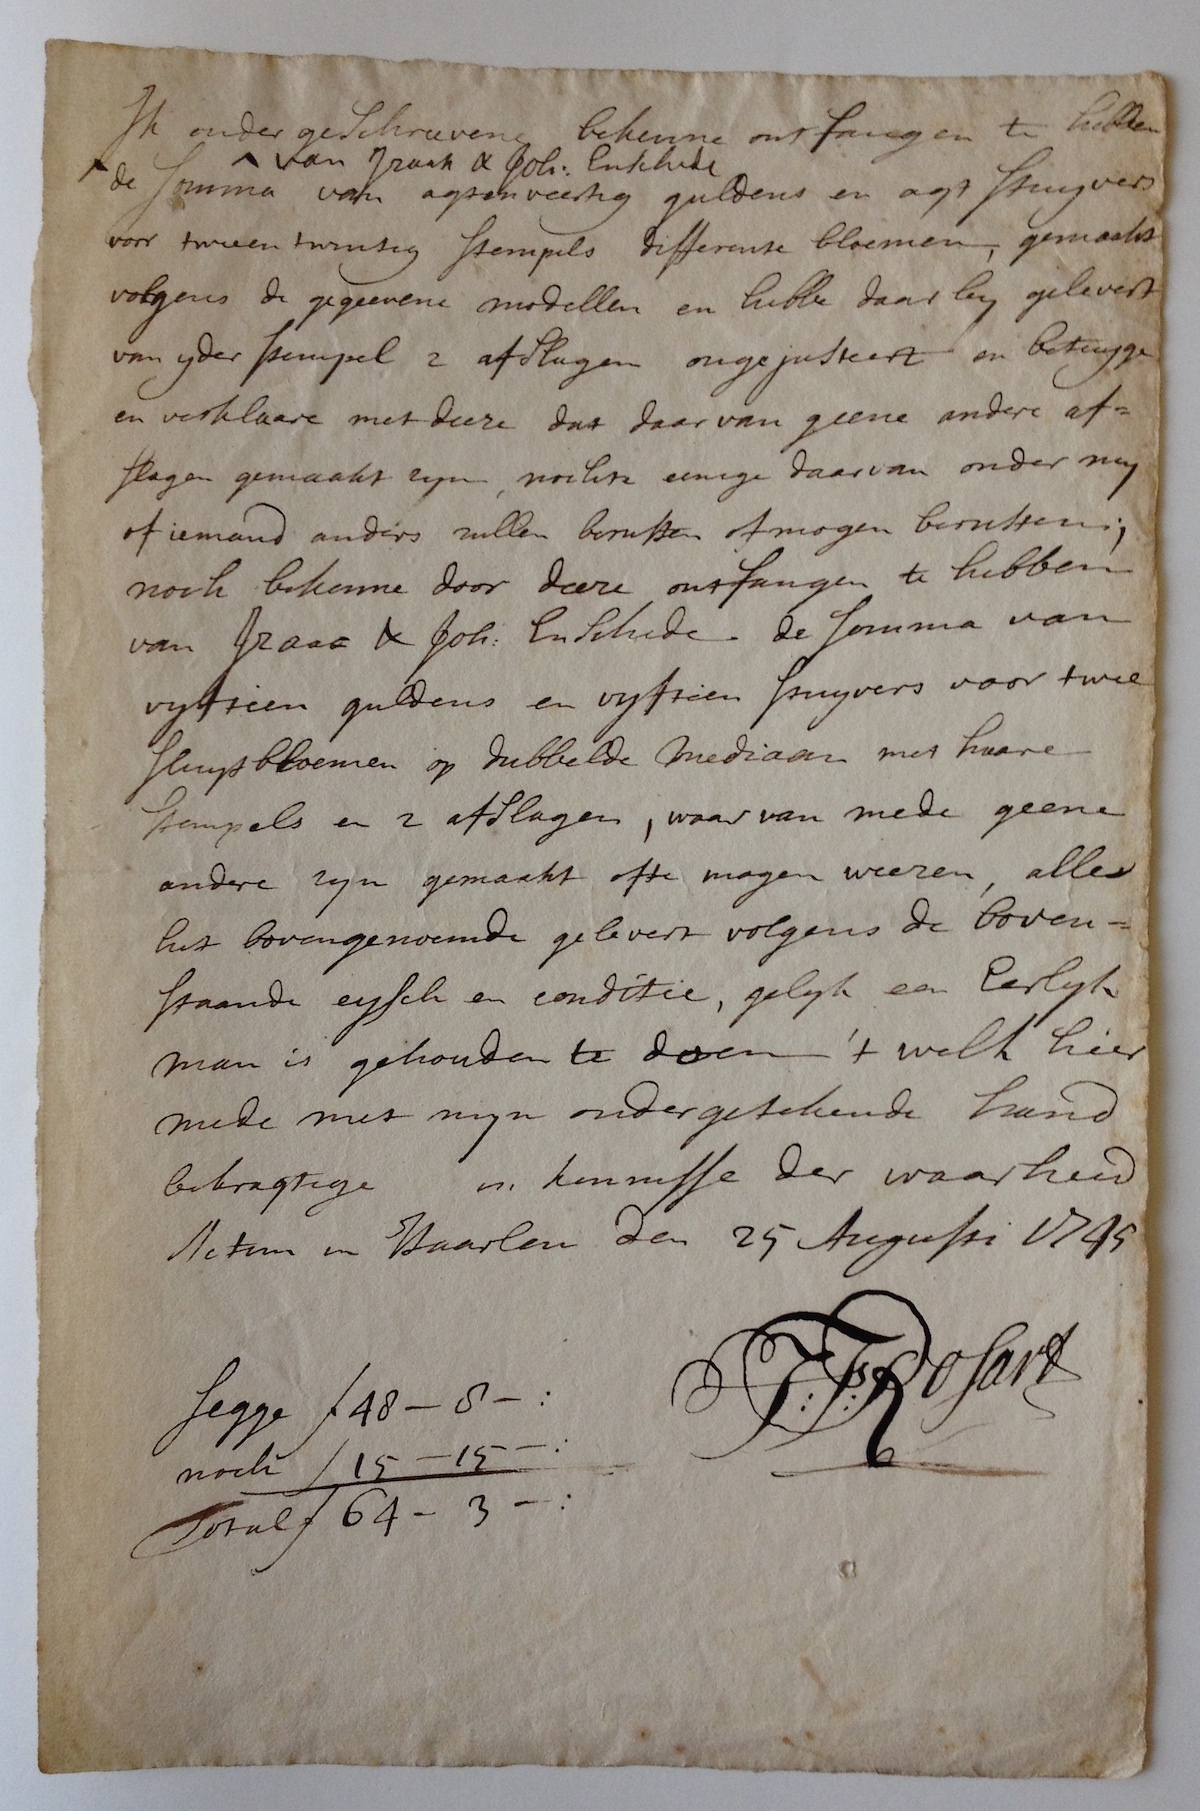 Ik ondergeschreevene bekenne ontfangen te hebben
van Izaak & Joh: Enschede
de somma van agtenveertig guldens en agt stuyvers
voor tweentwintig stempels differente bloemen, gemaakt
volgens de gegeevene modellen en hebbe daar bij gelevert
van yder stempel 2 afslagen ongejusteert en betuyge
en verklaare met deeze dat daar van geene andere af=
slagen gemaakt zyn, nochte eenige daarvan onder my
of iemand anders zullen berusten of mogen berusten;
noch bekenne door deeze ontfangen te hebben
van Izaac & Joh: Enschede de somma van
vyftien guldens en vyftien stuyvers voor twee
sluytbloemen op dubbelde Mediaan met haare
stempels en 2 afslagen, waar van mede geene
andere zyn gemaakt ofte mogen weezen, alles
het bovengenoemde gelevert volgens de boven=
staande eysch en conditie, gelyk een Eerlyk
man is gehouden te doen 't welk hier
mede met myn ondergetekende hand
bekragtige in kennisse der waarheid
Actum in Haarlem den 25 Augusti 1745
J: F: Rosart
segge f 48 – 8 – :
noch f 15 – 15 – :
Totul f 64 – 3 – :